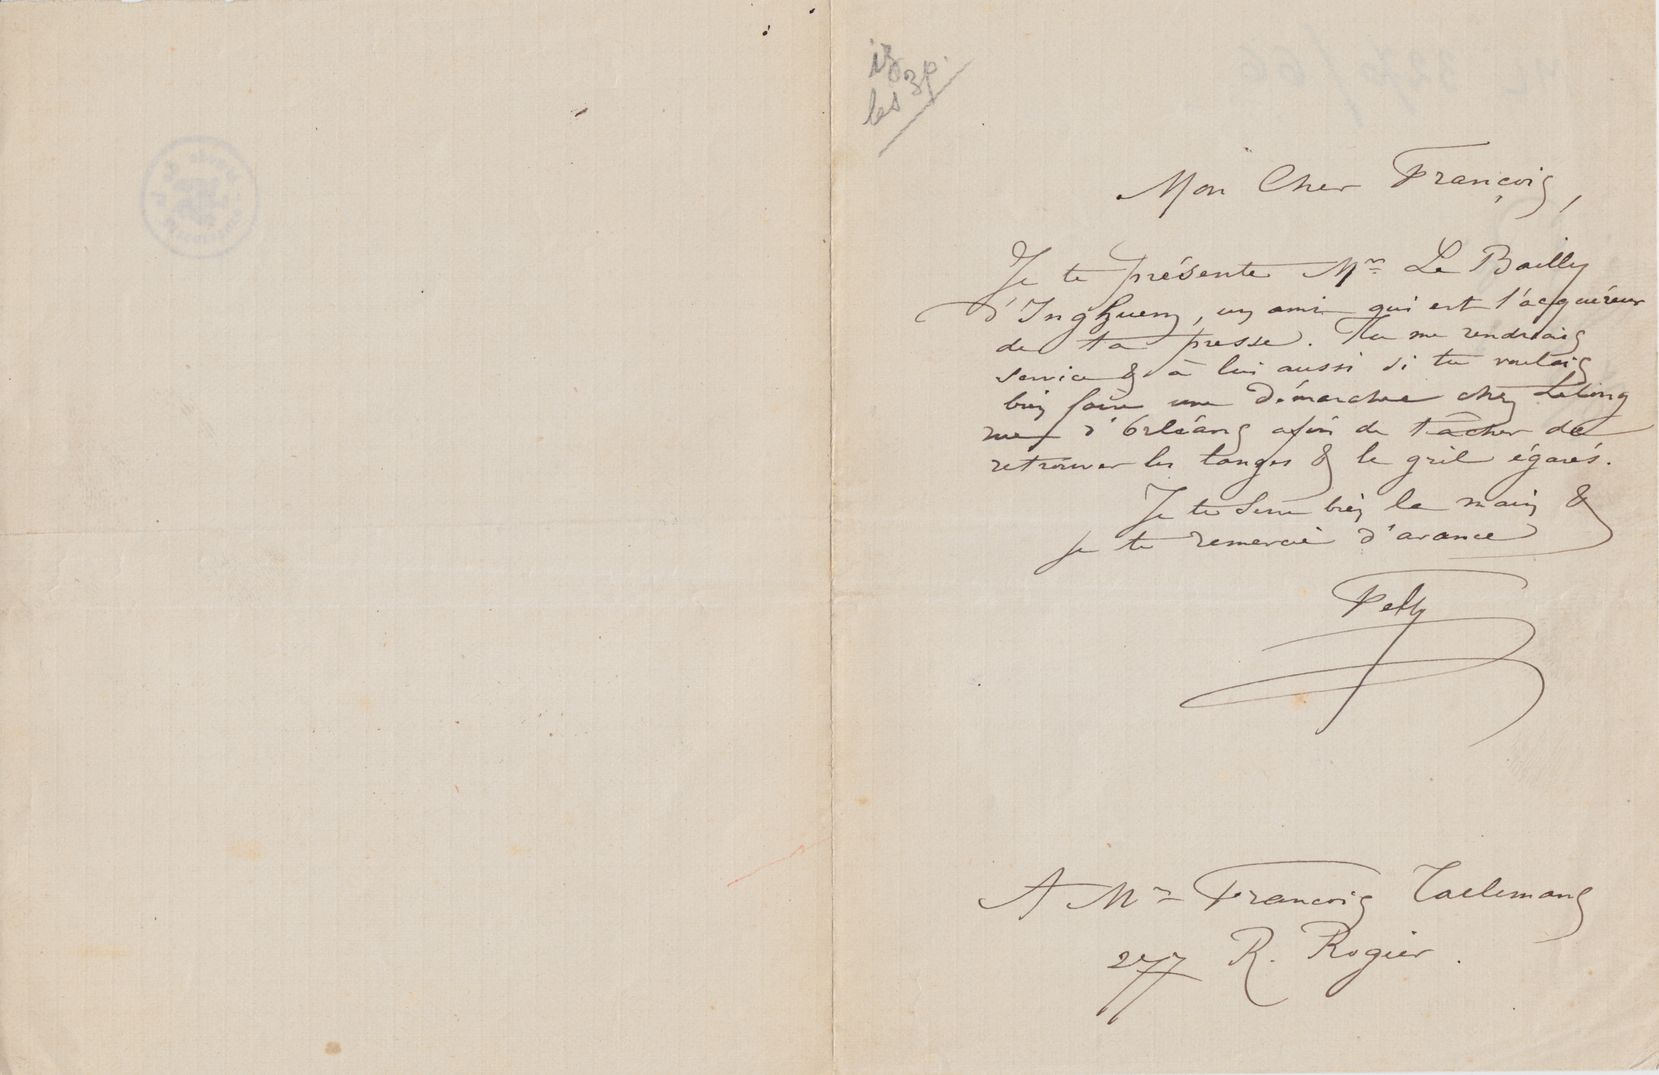 Mon Cher François,
Je te présente Mr Le Bailly
d'Inghuem, un ami qui est l'acquéreur
de ta presse. Tu me rendrais
service & à lui aussi si tu voulais
bien faire une démarche chez Lelong
rue d'Orléans afin de tâcher de
retrouver les langes & le gril égarés.
Je te serre bien la main &
je te remercie d'avance
Fély
A Mr François Taelemans
277 R. Rogier.